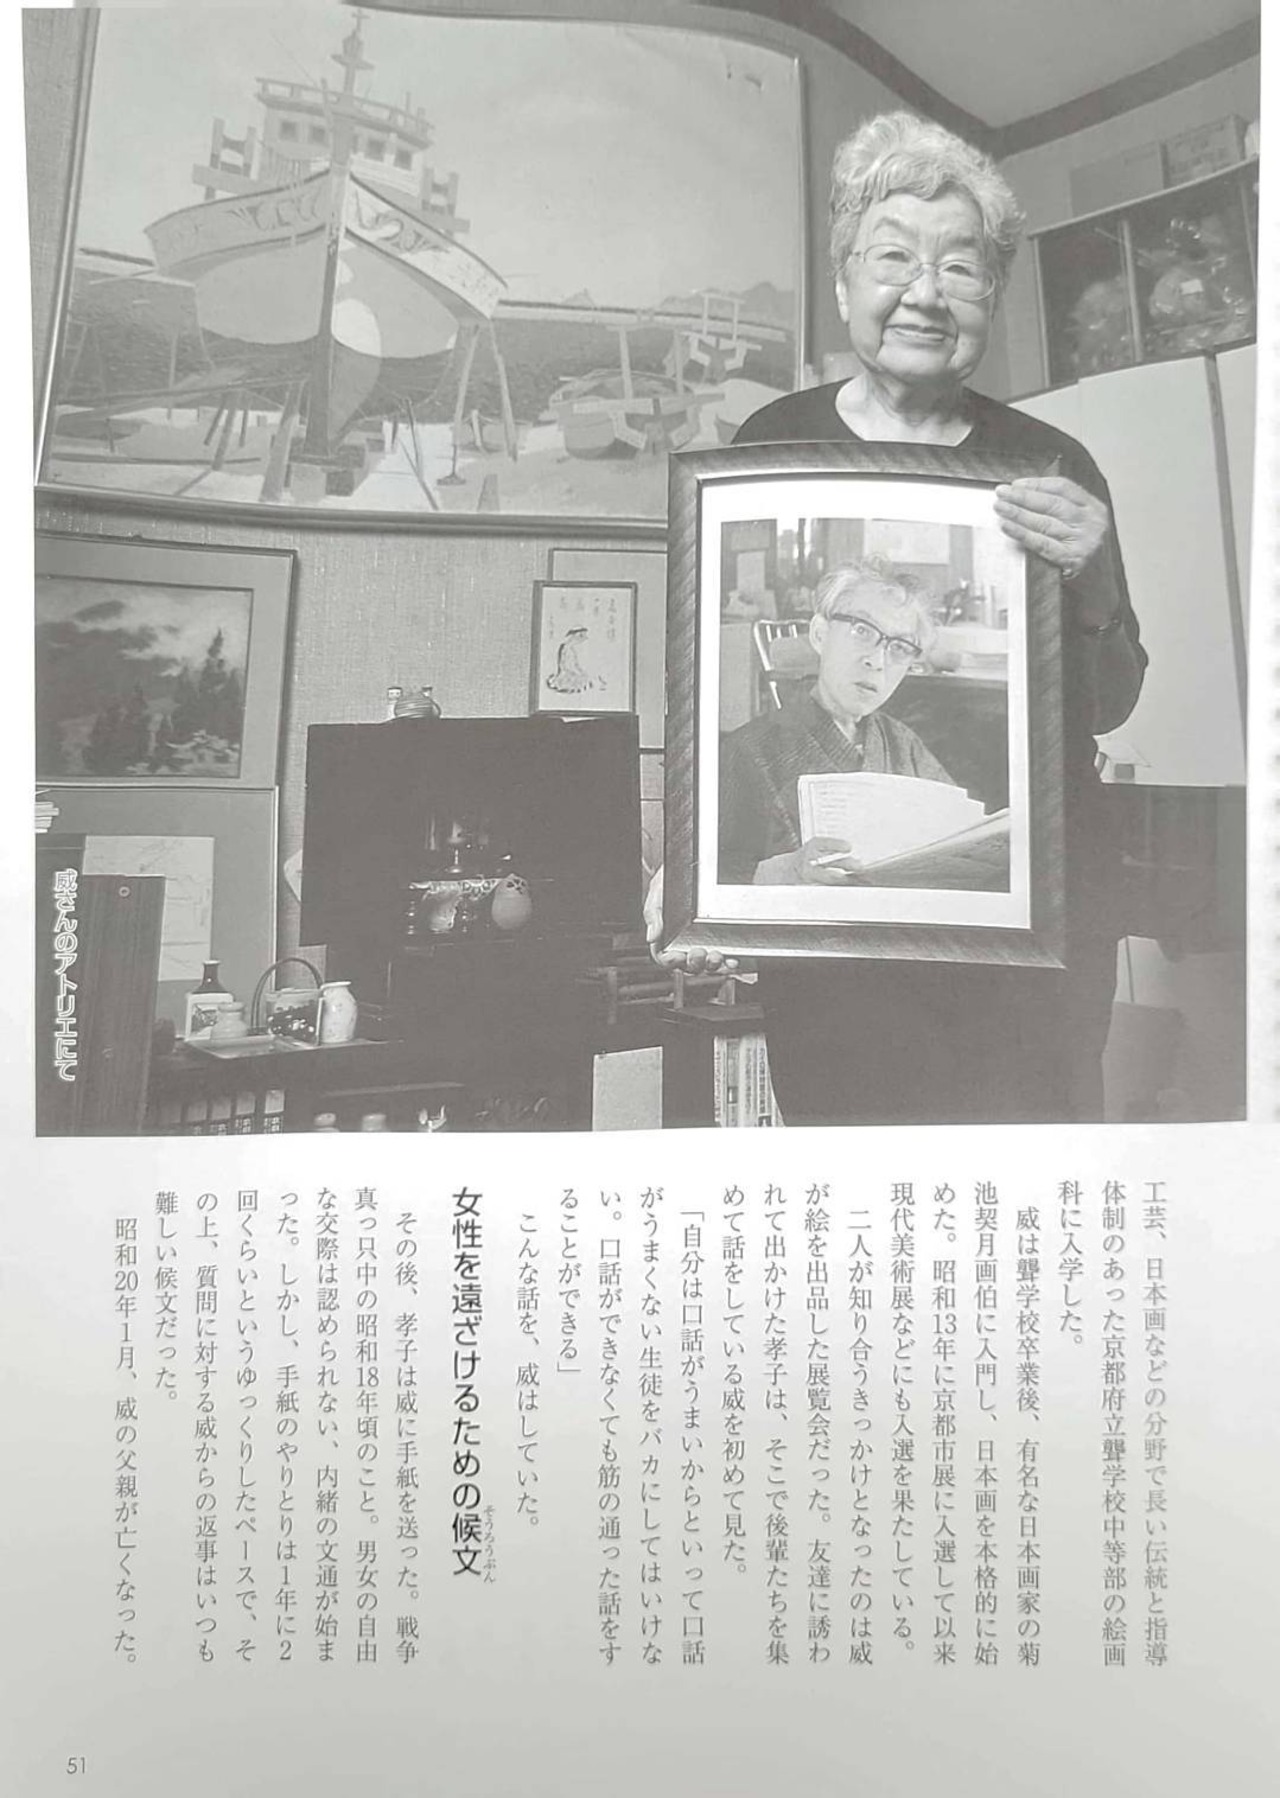 威さんのアトリエにて
工芸、日本画などの分野で長い伝統と指導
体制のあった京都府立聾学校中等部の絵画
科に入学した。
威は聾学校卒業後、有名な日本画家の菊
池契月画伯に入門し、日本画を本格的に始
めた。昭和13年に京都市展に入選して以来
現代美術展などにも入選を果たしている。
二人が知り合うきっかけとなったのは威
が絵を出品した展覧会だった。友達に誘わ
れて出かけた孝子は、そこで後輩たちを集
めて話をしている威を初めて見た。
「自分は口話がうまいからといって口話
がうまくない生徒をバカにしてはいけな
い。口話ができなくても筋の通った話をす
ることができる」
こんな話を、威はしていた。
女性を遠ざけるための候文
そうろうぶん
その後、孝子は威に手紙を送った。戦争
真っ只中の昭和18年頃のこと。男女の自由
な交際は認められない、内緒の文通が始ま
った。しかし、手紙のやりとりは1年に2
回くらいというゆっくりしたペースで、そ
の上、質問に対する威からの返事はいつも
難しい候文だった。
昭和20年1月、威の父親が亡くなった。
51